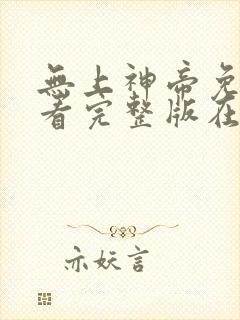 無上神帝免
看完整版在
亦妖言